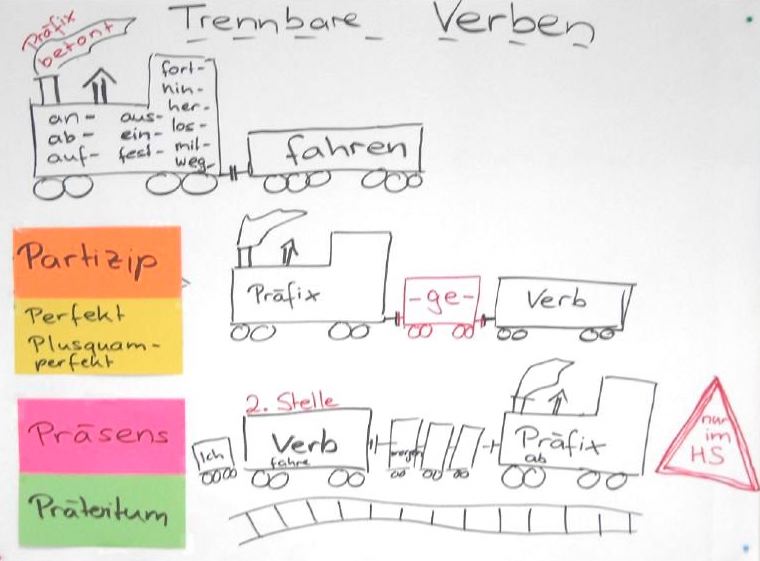 Trennbare Verben
Präfix
betont
fort-
hin-
her-
los-
mit-
weg-
an- aus-
ab- ein-
auf- fest-
fahren
Partizip
Perfekt
Plusquam-
perfekt
Präfix
-ge-
Verb
Präsens
Präteritum
2. Stelle
Ich
Verb
fahre
morgen
Präfix
ab
nur
im
HS